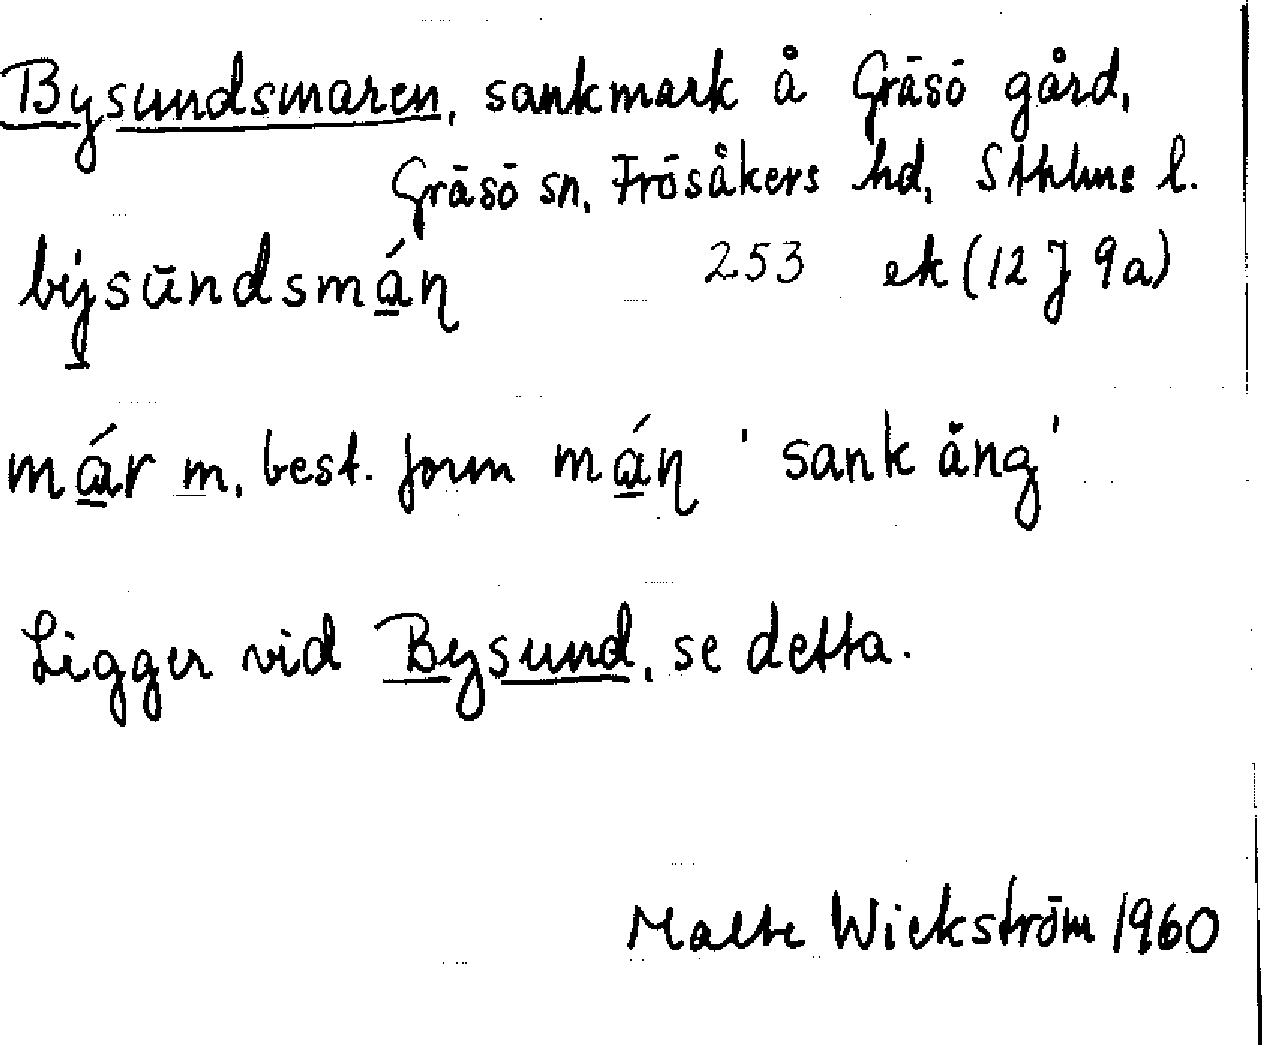 Bysundsmaren, sankmark å Gräsö gård,
Gräsö sn, Frösåkers hd, Sthlms l.
bý̱su̅ndsmá̱ɳ 253 ek (12 J 9a)
má̱r m, best. form má̱ɳ 'sank äng'
Ligger vid Bysund, se detta.
Malte Wickström 1960